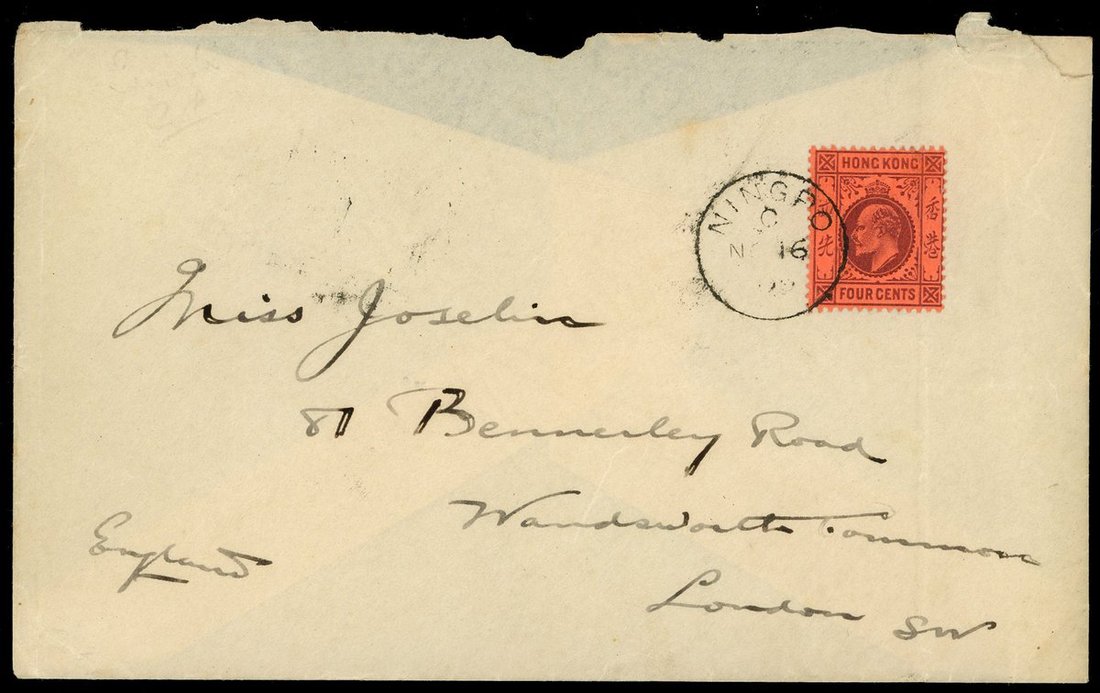 HONG KONG
香港
先
FOUR CENTS
NINGPO
C
16
Miss Joselin
81 Bennerley Road
Wandsworth Common
London SW
England